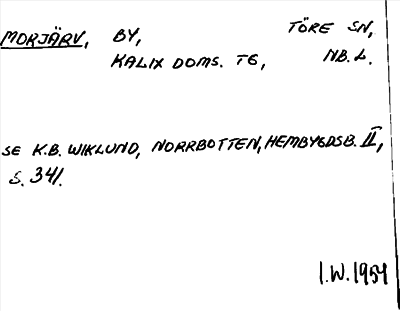 MORJÄRV, BY, TÖRE SN,
KALIX DOMS. TG, NB.L.
SE K.B. WIKLUND, NORRBOTTEN, HEMBYGDSB. II,
S. 341.
I.W. 1954